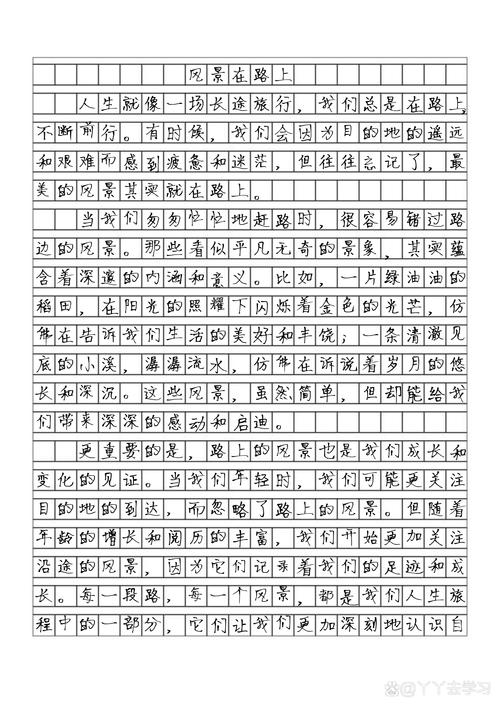 风景在路上
人生就像一场长途旅行，我们总是在路上，
不断前行。有时候，我们会因为目的地的遥远
和艰难而感到疲惫和迷茫，但往往忘记了，最
美的风景其实就在路上。
当我们匆匆忙忙地赶路时，很容易错过路
边的风景。那些看似平凡无奇的景象，其实蕴
含着深邃的内涵和意义。比如，一片绿油油的
稻田，在阳光的照耀下闪烁着金色的光芒，仿
佛在告诉我们生活的美好和丰饶；一条清澈见
底的小溪，潺潺流水，仿佛在诉说着岁月的悠
长和深沉。这些风景，虽然简单，但却能给我
们带来深深的感动和启迪。
更重要的是，路上的风景也是我们成长和
变化的见证。当我们年轻时，我们可能更关注
目的地的到达，而忽略了路上的风景。但随着
年龄的增长和阅历的丰富，我们开始更加关注
沿途的风景，因为它们记录着我们的足迹和成
长。每一段路，每一个风景，都是我们人生旅
程中的一部分，它们让我们更加深刻地认识自
@丫丫去学习